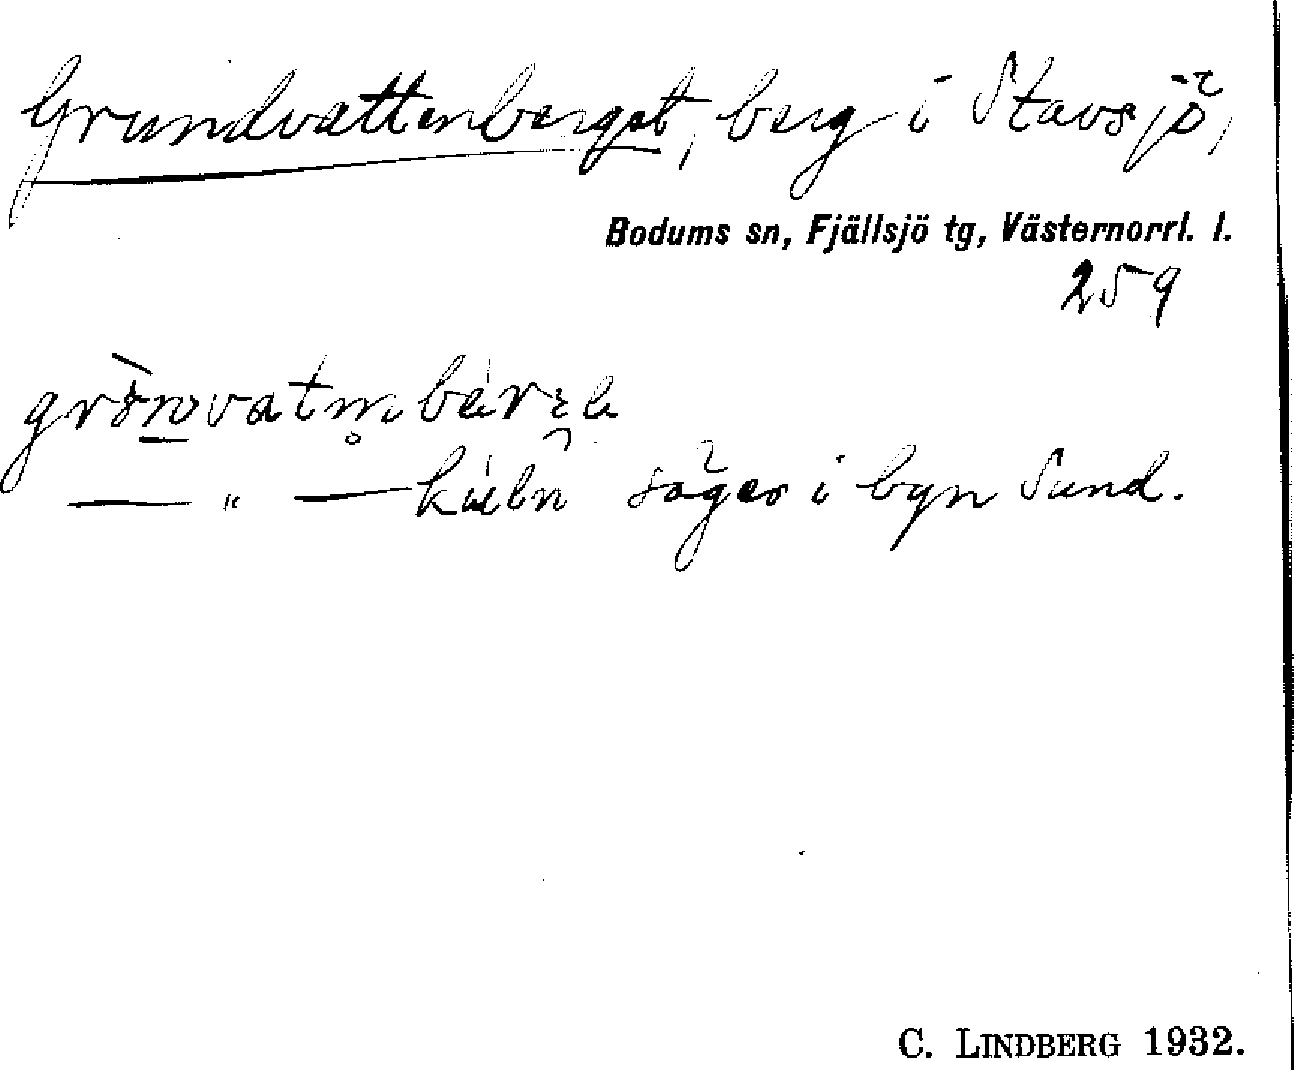 Grundvattenberget, berg i Stavsjö,
Bodums sn, Fjällsjö tg, Västernorrl. l.
259
— „ — säges i byn Sund.
C. LINDBERG 1932.